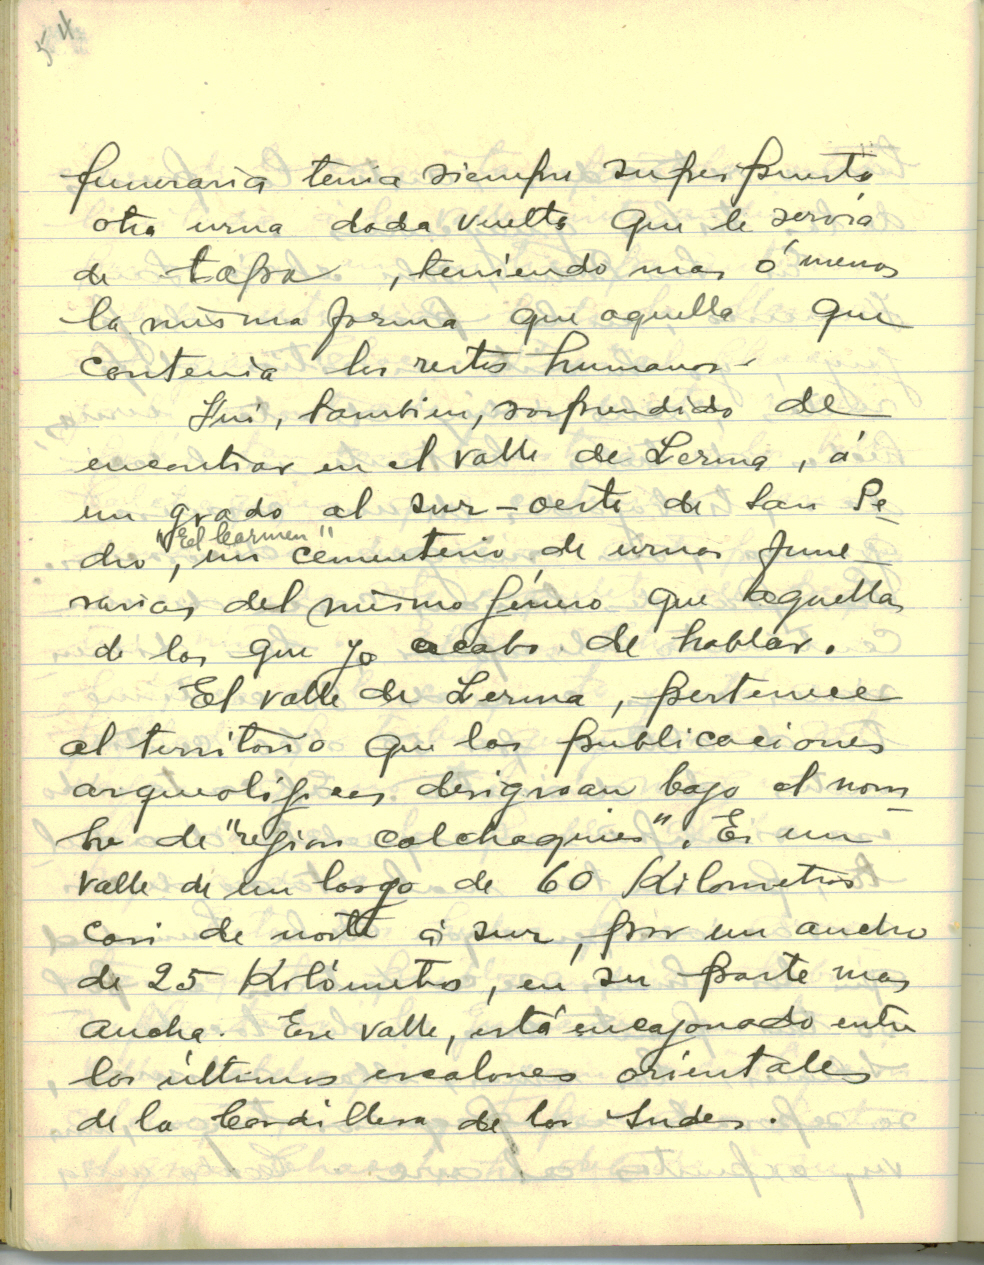 54
funeraria tenia siempre superpuesta
otra urna dada vuelta que le servía
de tapa, teniendo mas ó menos
la misma forma que aquella que
contenia los restos humanos.
Fuí, tambien, sorprendido de
encontrar en el valle de Lerma, á
un grado al sur-oeste de San Pe-
"El Carmen"
dro, un cementerio de urnas fune-
rarias del mismo género que aquellas
de las que yo acabo de hablar.
El valle de Lerma, pertenece
al territorio que las publicaciones
arqueológicas designan bajo el nom-
bre de "region calchaquies". Es un
valle de un largo de 60 Kilometros
casi de norte á sur, por un ancho
de 25 Kilómetros, en su parte mas
ancha. Ese valle, está encajonado entre
los últimos escalones orientales
de la Cordillera de los Andes.